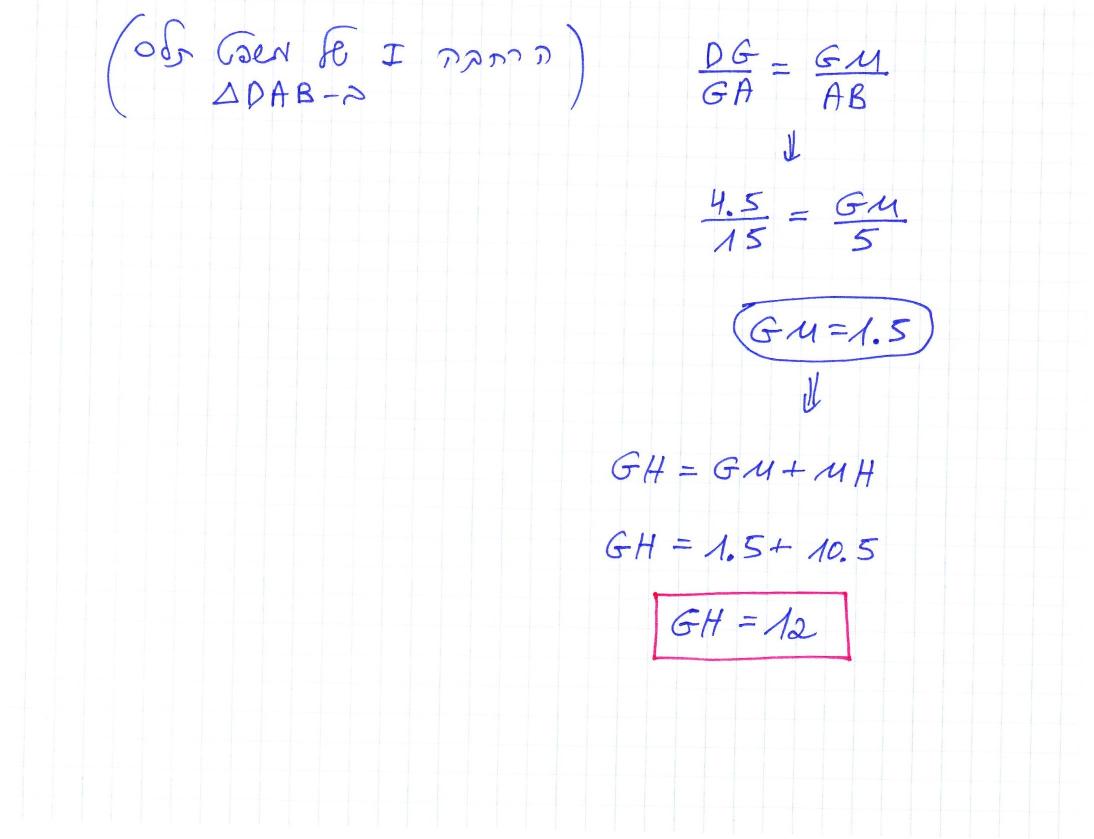 (הרחבה I של משפט תלס
ב-ΔDAB)
DG/GA = GM/AB
⇓
4.5/15 = GM/5
GM = 1.5
⇓
GH = GM + MH
GH = 1.5 + 10.5
GH = 12